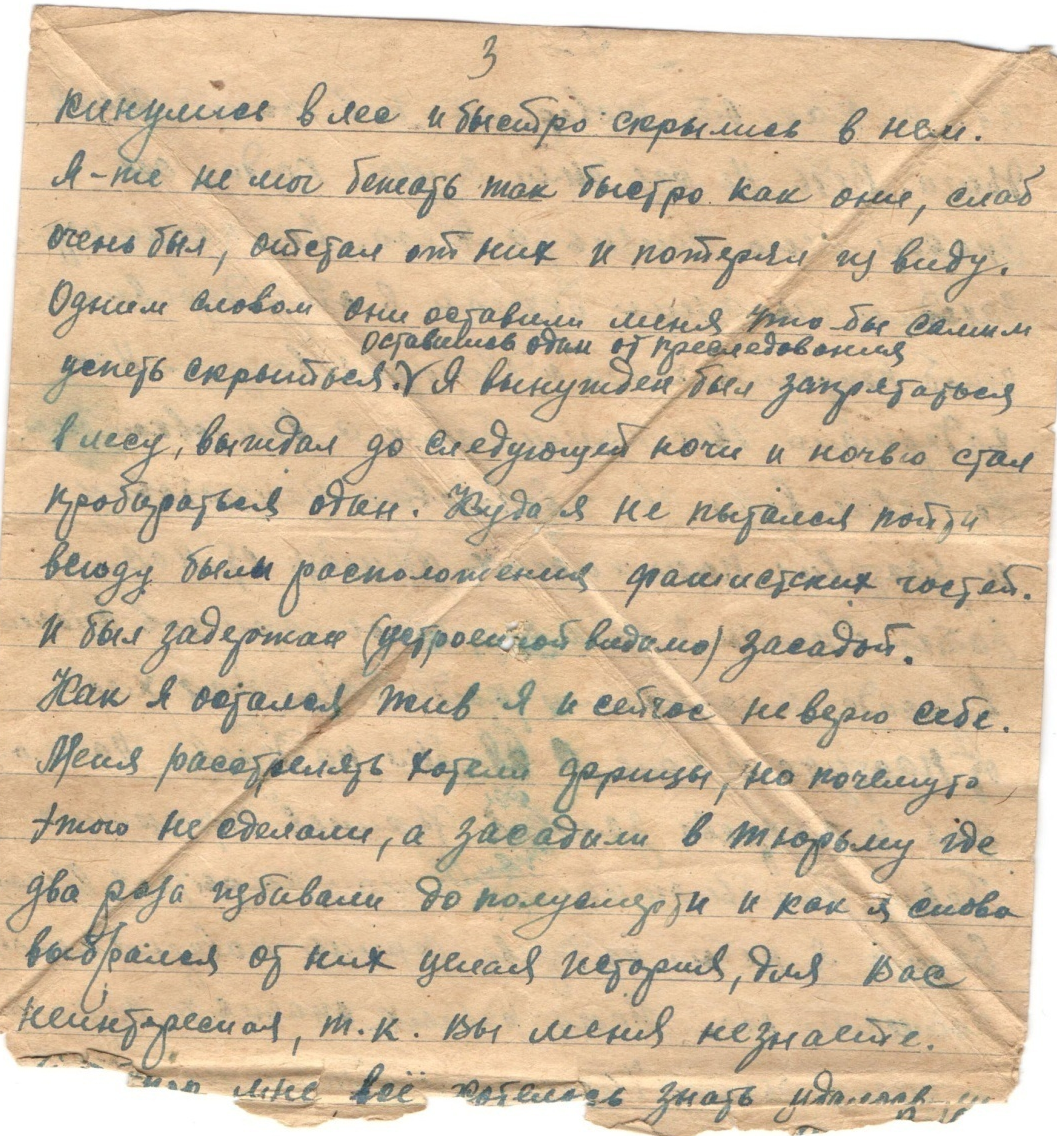 3
кинулись в лес и быстро скрылись в нем.
Я-же не мог бежать так быстро как они, слаб
очень был, отстал от них и потерял из виду.
Одним словом они оставили меня что бы самим
оставшись один от преследования
успеть скрыться. V Я вынужден был запрятаться
в лесу, выждал до следующей ночи и ночью стал
пробираться один. Куда я не пытался пойти
всюду были расположения фашистских частей.
и был задержан (устроенной видимо) засадой.
Как я остался жив я и сейчас не верю себе.
Меня расстрелять хотели фрицы, но почемуто
этого не сделали, а засадили в тюрьму где
два раза избивали до полусмерти и как я снова
выбрался от них целая история, для Вас
неинтересная, т.к. Вы меня незнаете.
мне всё хотелось знать удалось